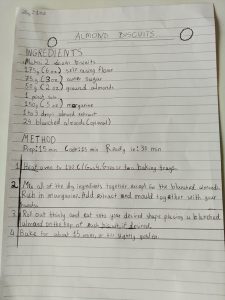 ALMOND BISCUITS
INGREDIENTS
Makes 2 dozen biscuits
175g (6 oz) self raising flour
75g (3 oz) caster sugar
57g (2 oz) ground almonds
1 pinch salt
150g (5 oz) margarine
1 to 3 drops almond extract
24 blanched almonds (optional)
METHOD
Prep: 15 min Cook: 15 min Ready in: 30 min
1. Heat oven to 180 C / Gas 4. two baking trays.
2. Mix all of the dry ingredients together except for the blanched almonds.
Rub in margarine. Add extract and mould together with your
hands.
3. Roll out thinly and cut into your desired shape placing a blanched
almond on the top of each biscuit if desired.
4. Bake for about 15 mins, or till slightly golden.